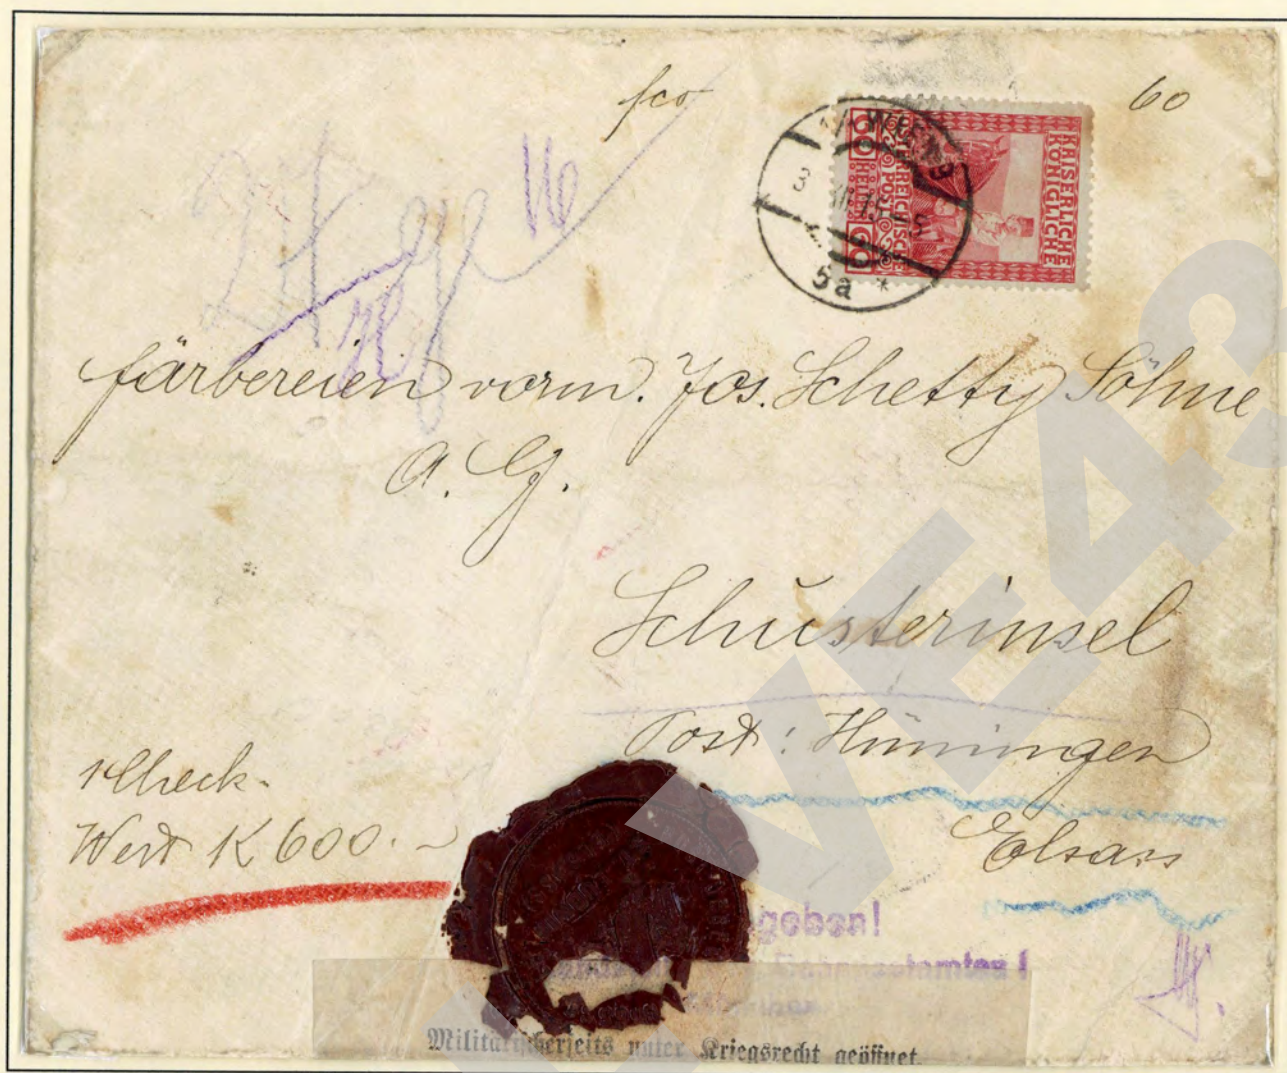 fco 60
16
KAISERLICHE KÖNIGLICHE
ÖSTERREICHISCHE POST
60 HELLER 60
WIEN
5a *
färbereien vorm. Jos. Schetty Söhne
A. G.
Schusterinsel
Post: Hüningen
Elsass
1 Check-
Wert K 600.-
geben!
Militärischerseits unter Kriegsrecht geöffnet.